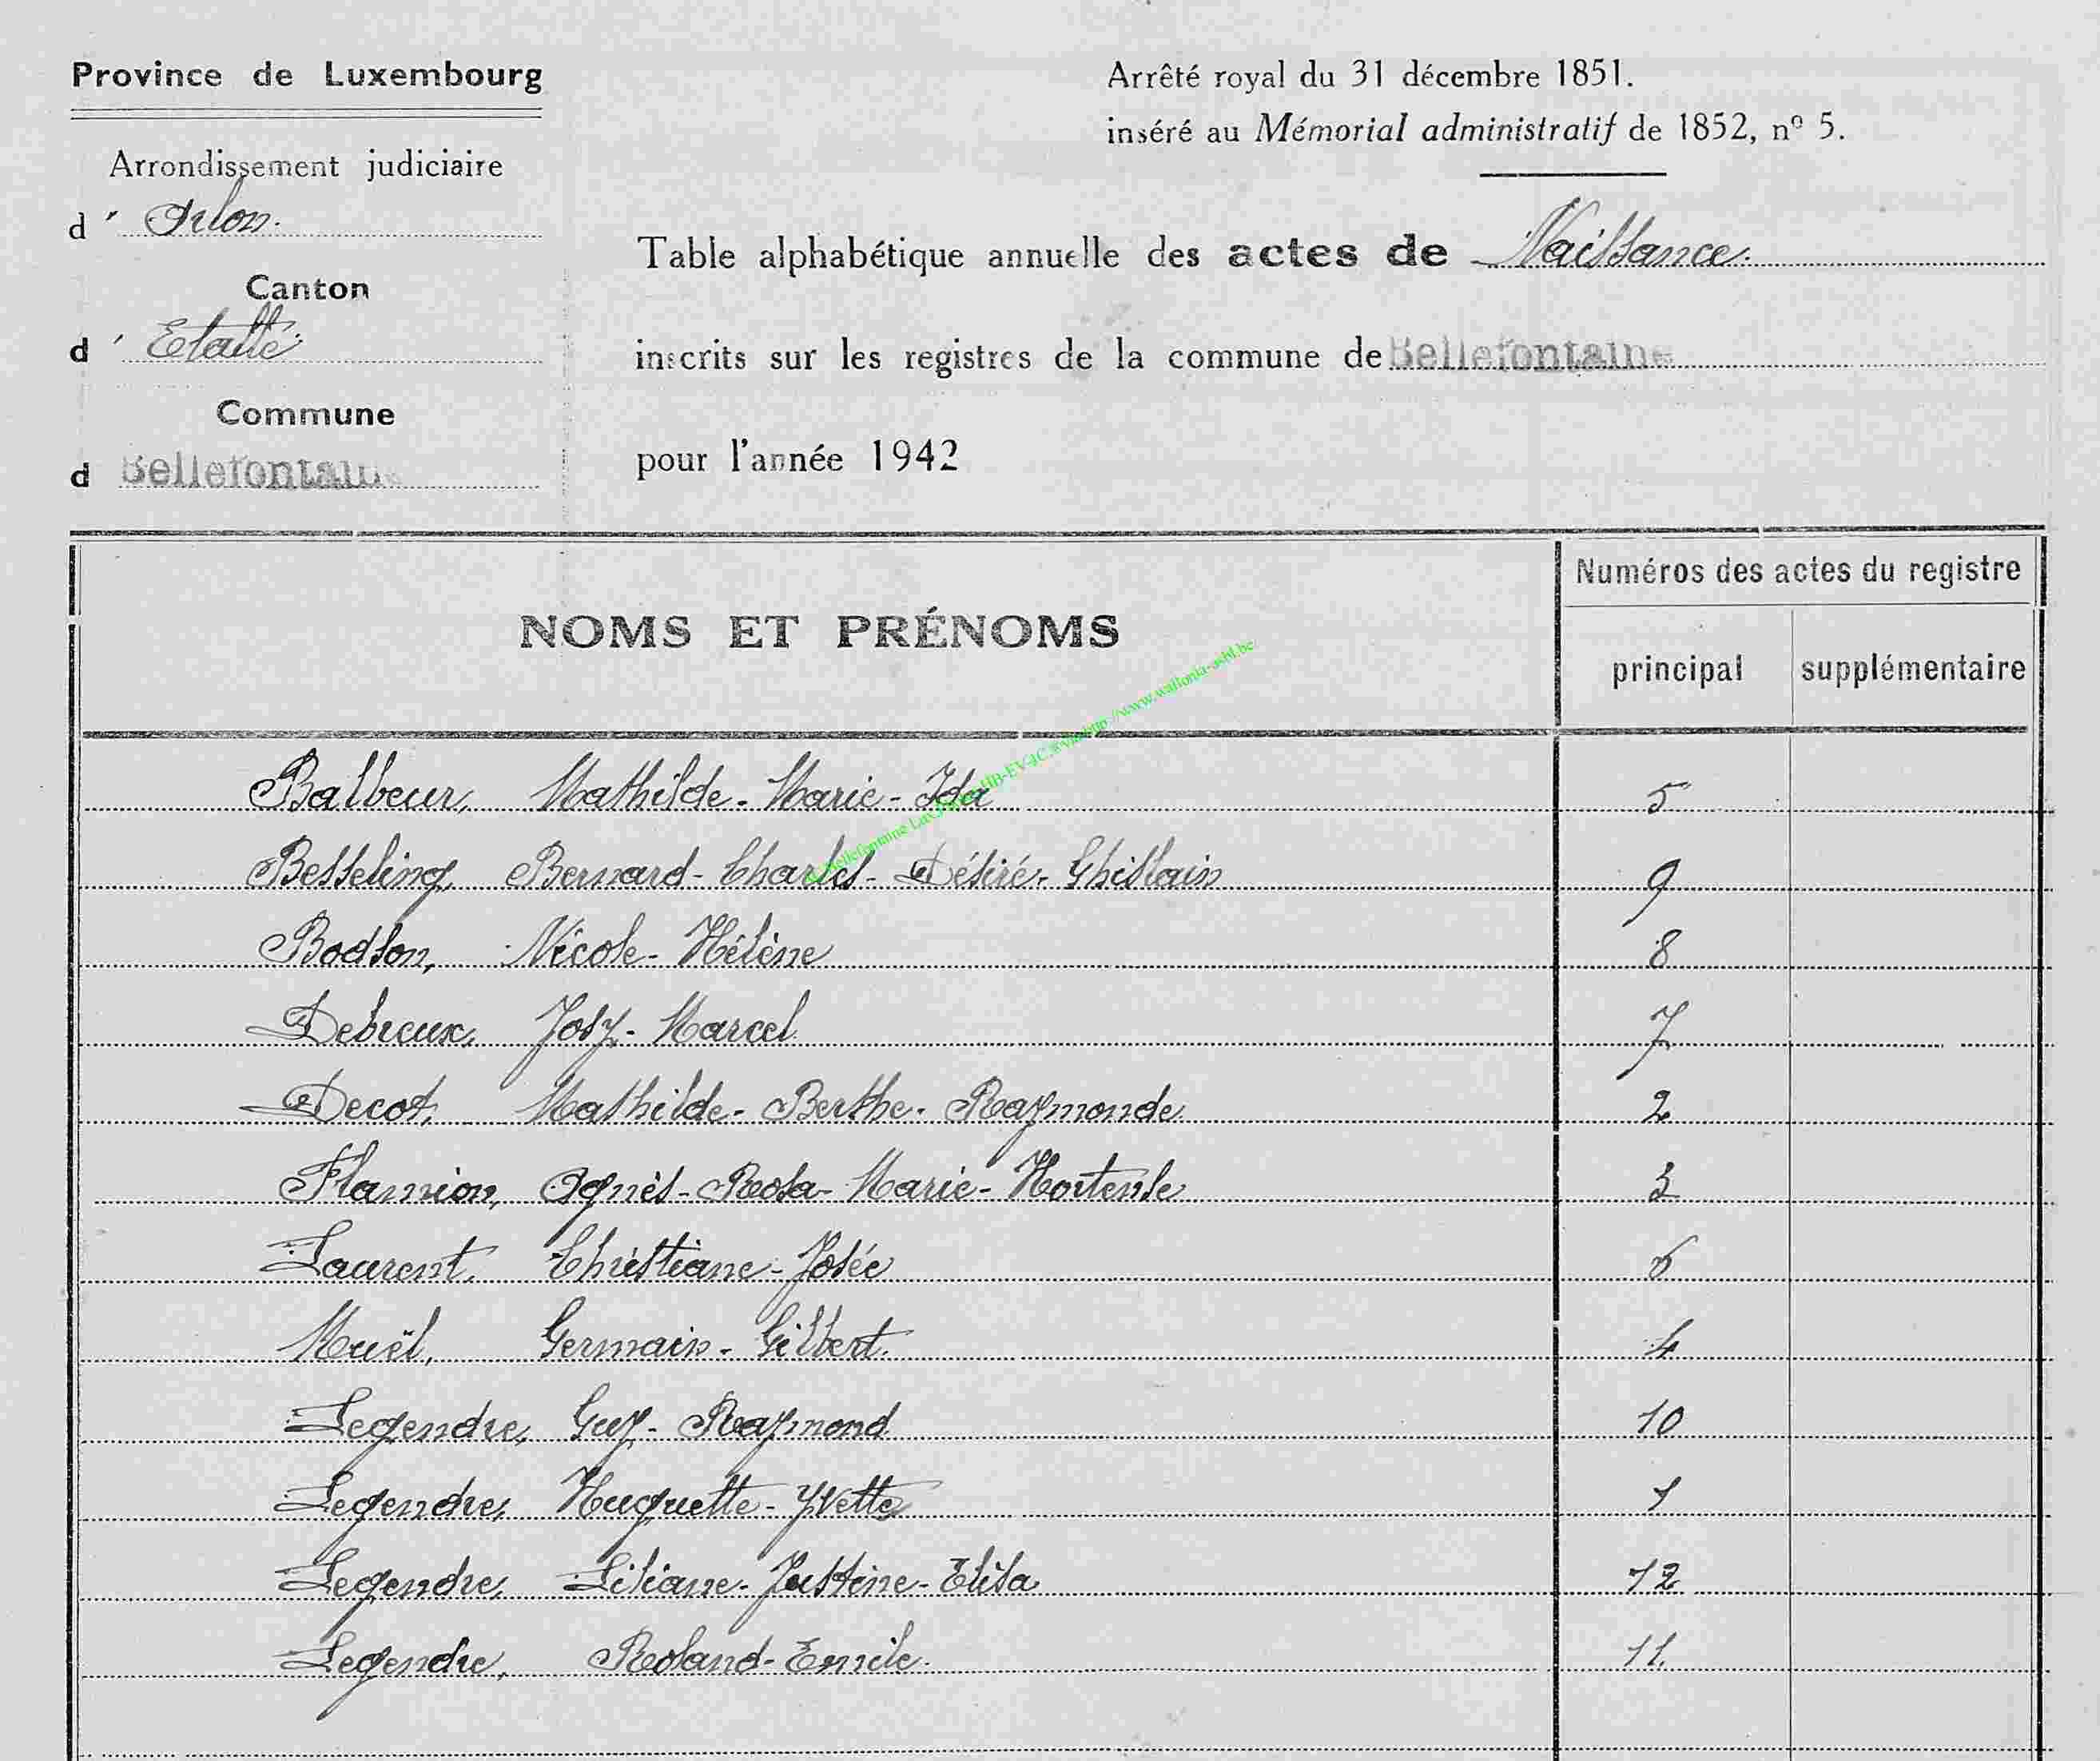 Province de Luxembourg
Arrêté royal du 31 décembre 1851.
inséré au Mémorial administratif de 1852, nº 5.
Arrondissement judiciaire
d' Arlon.
Table alphabétique annuelle des actes de Naissance.
Canton
d' Etalle
inscrits sur les registres de la commune de Bellefontaine
Commune
d Bellefontaine
pour l'année 1942
NOMS ET PRÉNOMS
Numéros des actes du registre
principal supplémentaire
Balbeur, Mathilde-Marie-Ida 5
Besseling, Bernard-Charles-Désiré-Ghislain 9
Bodson, Nicole-Hélène 8
Debreux, Josy-Marcel 7
Decot, Mathilde-Berthe-Raymonde 2
Flamion, Agnès-Rosa-Marie-Hortense 3
Laurent, Christiane-Josée 6
Muël, Germain-Gilbert. 4
Legendre, Guy-Raymond 10
Legendre, Huguette-Yvette 1
Legendre, Liliane-Justine-Elisa 12
Legendre, Roland-Emile. 11.